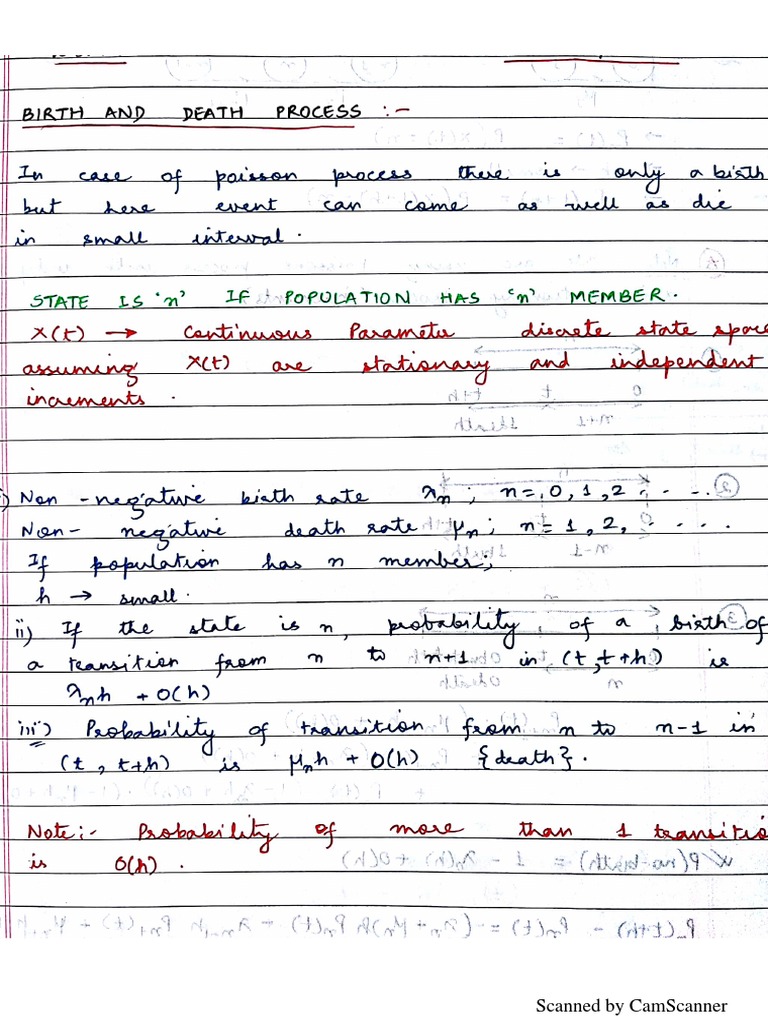 BIRTH AND DEATH PROCESS :-
In case of poisson process there is only a birth
but here event can come as well as die
in small interval.
STATE IS 'n' IF POPULATION HAS 'n' MEMBER.
X(t) → Continuous Parameter discrete state space
assuming X(t) are stationary and independent
increments.
i) Non-negative birth rate λn; n=0,1,2.....
Non-negative death rate μn; n=1,2,.....
If population has n member;
h → small.
ii) If the state is n, probability of a birth of
a transition from n to n+1 in (t,t+h) is
λnh + O(h)
iii) Probability of transition from n to n-1 in
(t, t+h) is μnh + O(h) {death}.
Note:- Probability of more than 1 transitio
is O(h).
Scanned by CamScanner